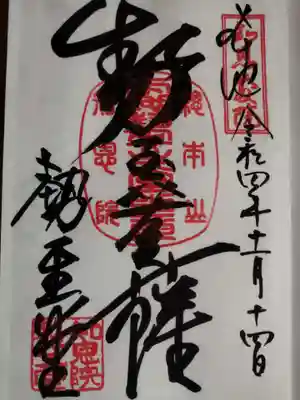 奉拝 令和四年十一月十四日
勢至菩薩
勢至堂
總本山
知恩院